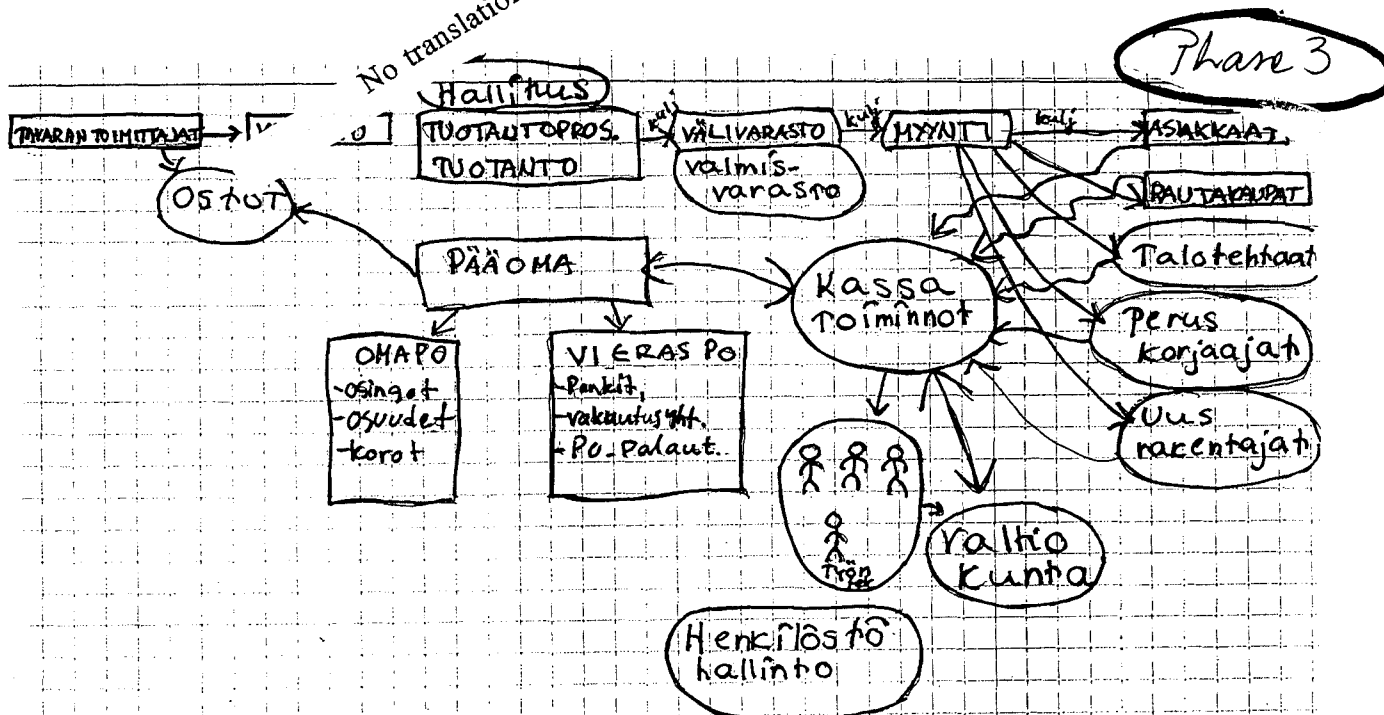 No translation
Phase 3
Hallitus
TAVARAN TOIMITTAJAT
TUOTANTOPROS.
TUOTANTO
kulj
VÄLIVARASTO
valmis-
varasto
kulj
MYYNTI
kulj
ASIAKKAAT
RAUTAKAUPAT
Talotehtaat
Perus
korjaajat
Uus
rakentajat
Ostot
PÄÄOMA
Kassa
Toiminnot
OMA PO
-osingot
-osuudet
-korot
VIERAS PO
-Pankit,
-vakuutusyht.
-Po-Palaut.
Valtio
Kunta
Henkilöstö
hallinto